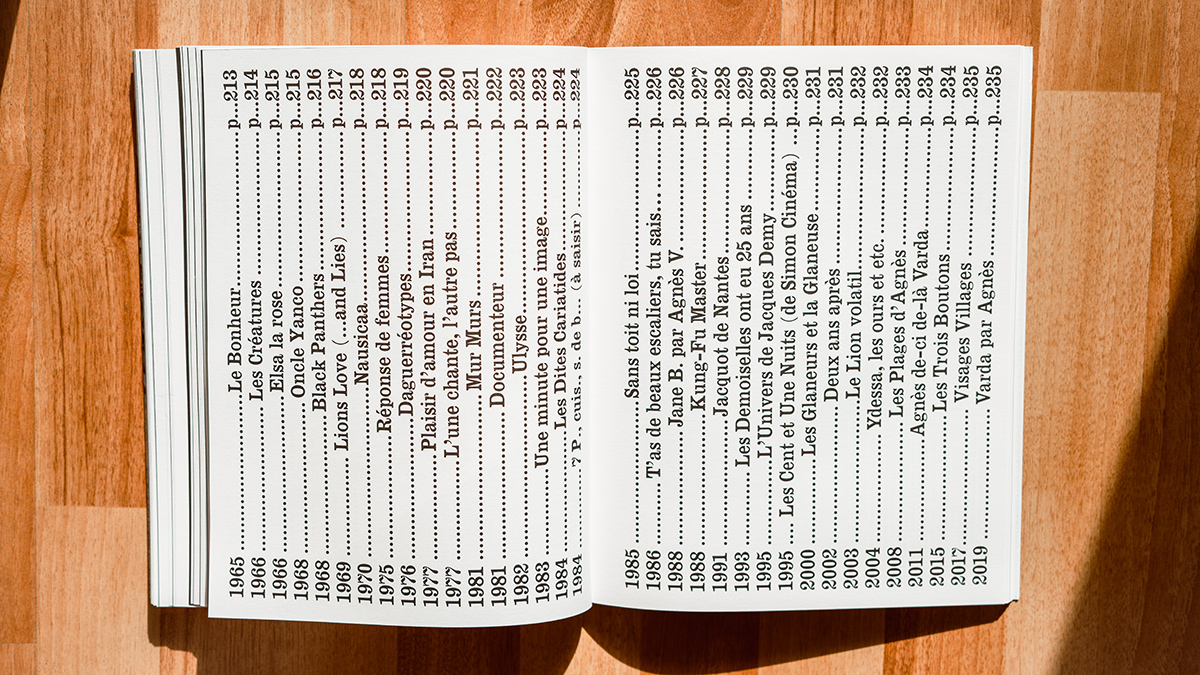 1965..........Le Bonheur..........p...213
1966..........Les Créatures..........p...214
1966..........Elsa la rose..........p...215
1968..........Oncle Yanco..........p...215
1968..........Black Panthers..........p...216
1969..........Lions Love (...and Lies)..........p...217
1970..........Nausicaa..........p...218
1975..........Réponse de femmes..........p...218
1976..........Daguerréotypes..........p...219
1977..........Plaisir d'amour en Iran..........p...220
1977..........L'une chante, l'autre pas..........p...220
1981..........Mur Murs..........p...221
1981..........Documenteur..........p...222
1982..........Ulysse..........p...223
1983..........Une minute pour une image..........p...223
1984..........Les Dites Cariatides..........p...224
1984..........7 P., cuis., s. de b... (à saisir)..........p...224
1985..........Sans toit ni loi..........p...225
1986..........T'as de beaux escaliers, tu sais..........p...226
1988..........Jane B. par Agnès V...........p...226
1988..........Kung-Fu Master..........p...227
1991..........Jacquot de Nantes..........p...228
1993..........Les Demoiselles ont eu 25 ans..........p...229
1995..........L'Univers de Jacques Demy..........p...229
1995...Les Cent et Une Nuits (de Simon Cinéma)...p...230
2000..........Les Glaneurs et la Glaneuse..........p...231
2002..........Deux ans après..........p...231
2003..........Le Lion volatil..........p...232
2004..........Ydessa, les ours et etc...........p...232
2008..........Les Plages d'Agnès..........p...233
2011..........Agnès de-ci de-là Varda..........p...234
2015..........Les Trois Boutons..........p...234
2017..........Visages Villages..........p...235
2019..........Varda par Agnès..........p...235